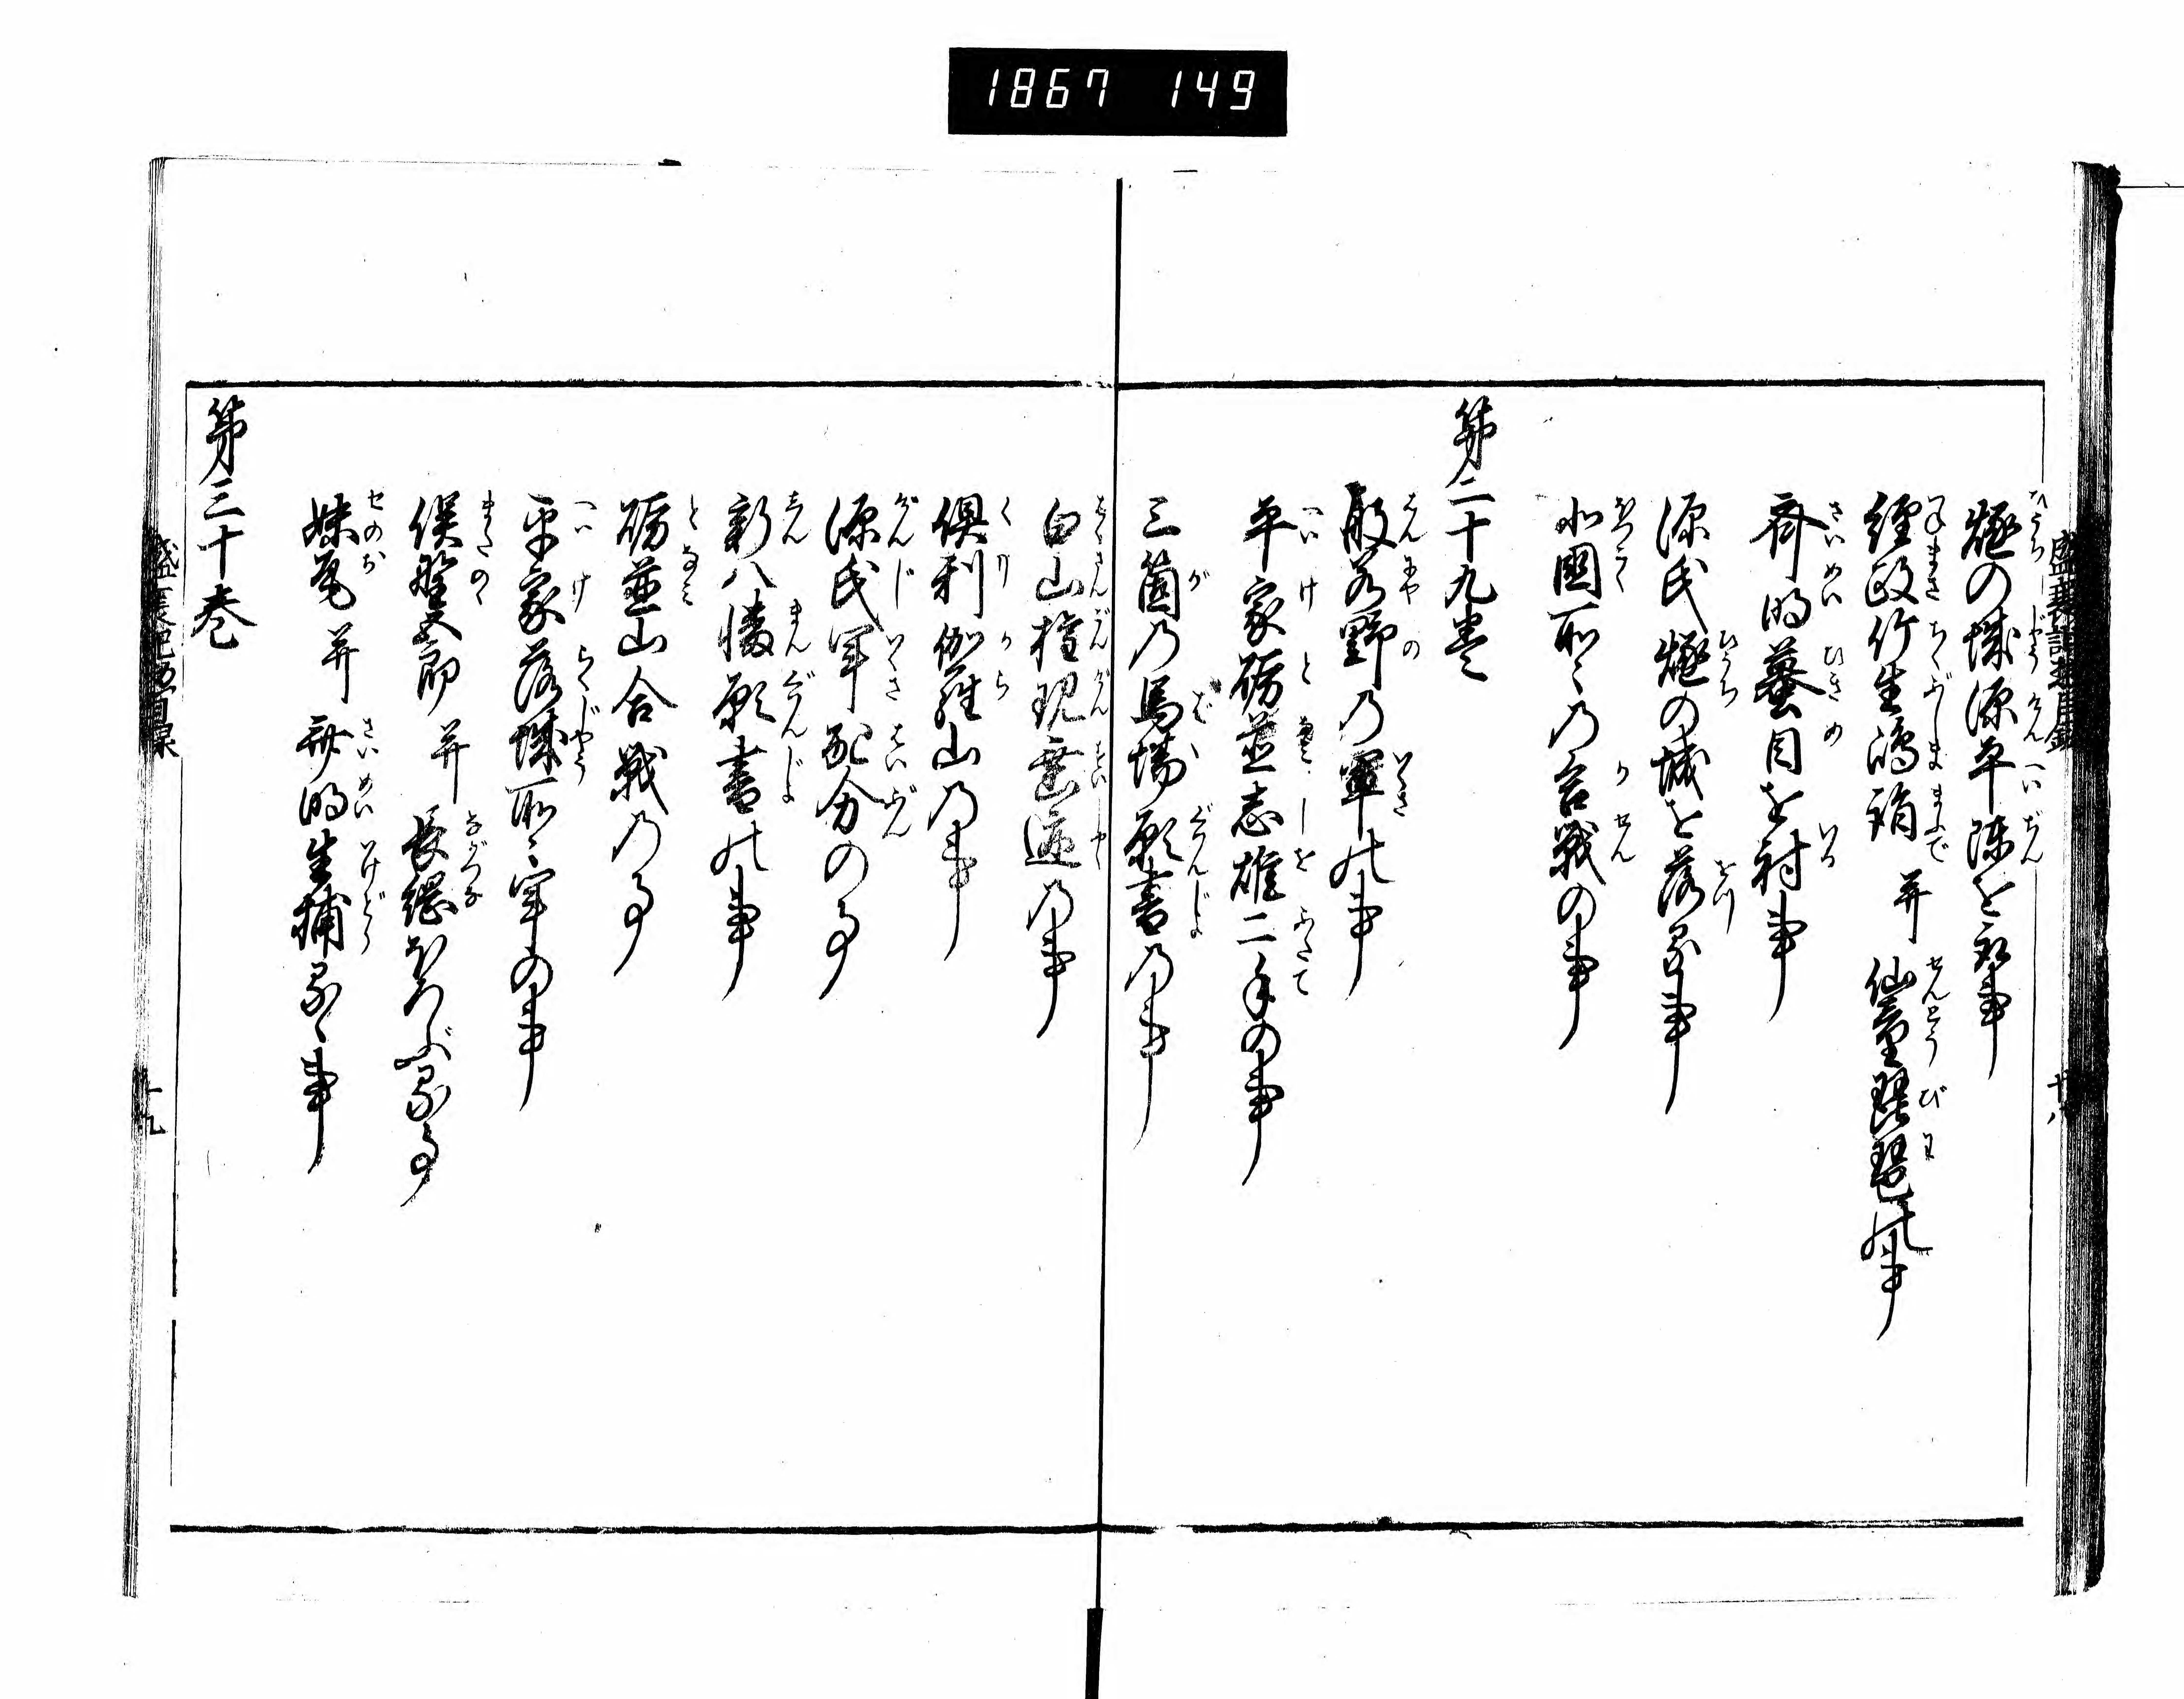 1867 149
燧の城源平陣を取事
経政竹生嶋詣并仙童琵琶の事
斉明蟇目を射事
源氏燧の城を落る事
北国所々の合戦の事
第二十九巻
般若野の軍の事
平家礪並志雄二手の事
三箇の馬場願書の事
白山権現垂迹の事
倶利伽羅山の事
源氏軍配分の事
新八幡願書の事
礪並山合戦の事
平家落城所々軍の事
俣野五郎并長綱ほろぶる事
妹尾并斉明生捕るゝ事
第三十巻